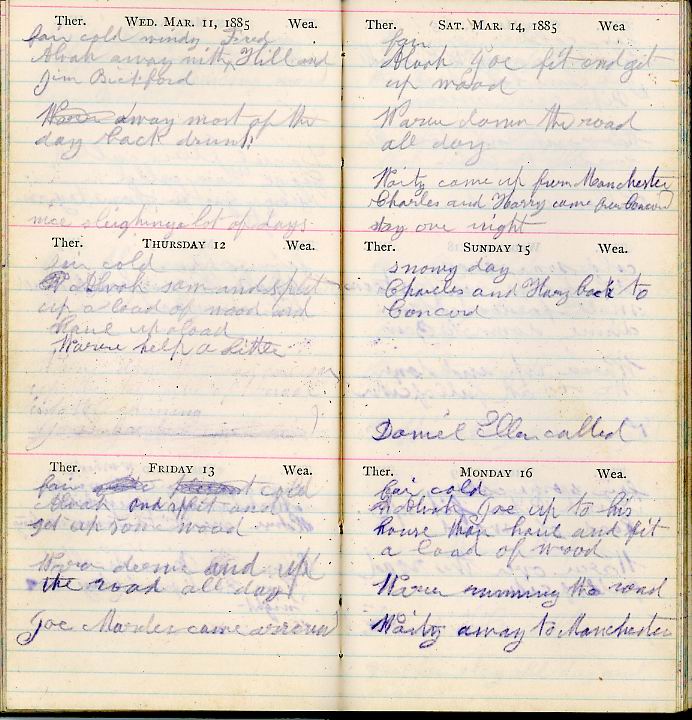 Ther. WED. MAR. 11, 1885 Wea.
fair cold windy Fred
Alvah away with Hill and
Jim Bickford
Waren away most of the
day back drunk
nice sleighing a lot of days
Ther. THURSDAY 12 Wea.
fair cold
Alvah sam and split
up a load of wood and
haul up a load
Waren help a little
Ther. FRIDAY 13 Wea.
fair cold
Alvah and split and
get up some wood
Waren down and up
the road all day
Joe Marden came
Ther. SAT. MAR. 14, 1885 Wea
fair
Alvah Joe fit and get
up wood
Waren down the road
all day
Harty came up from Manchester
Charles and Harry came from Concord
stay over night
Ther. SUNDAY 15 Wea.
snowy day
Charles and Harry back to
Concord
Daniel Ellen called
Ther. MONDAY 16 Wea.
fair cold
Alvah Joe up to his
house than haul and fit
a load of wood
Waren running the road
Harty away to Manchester